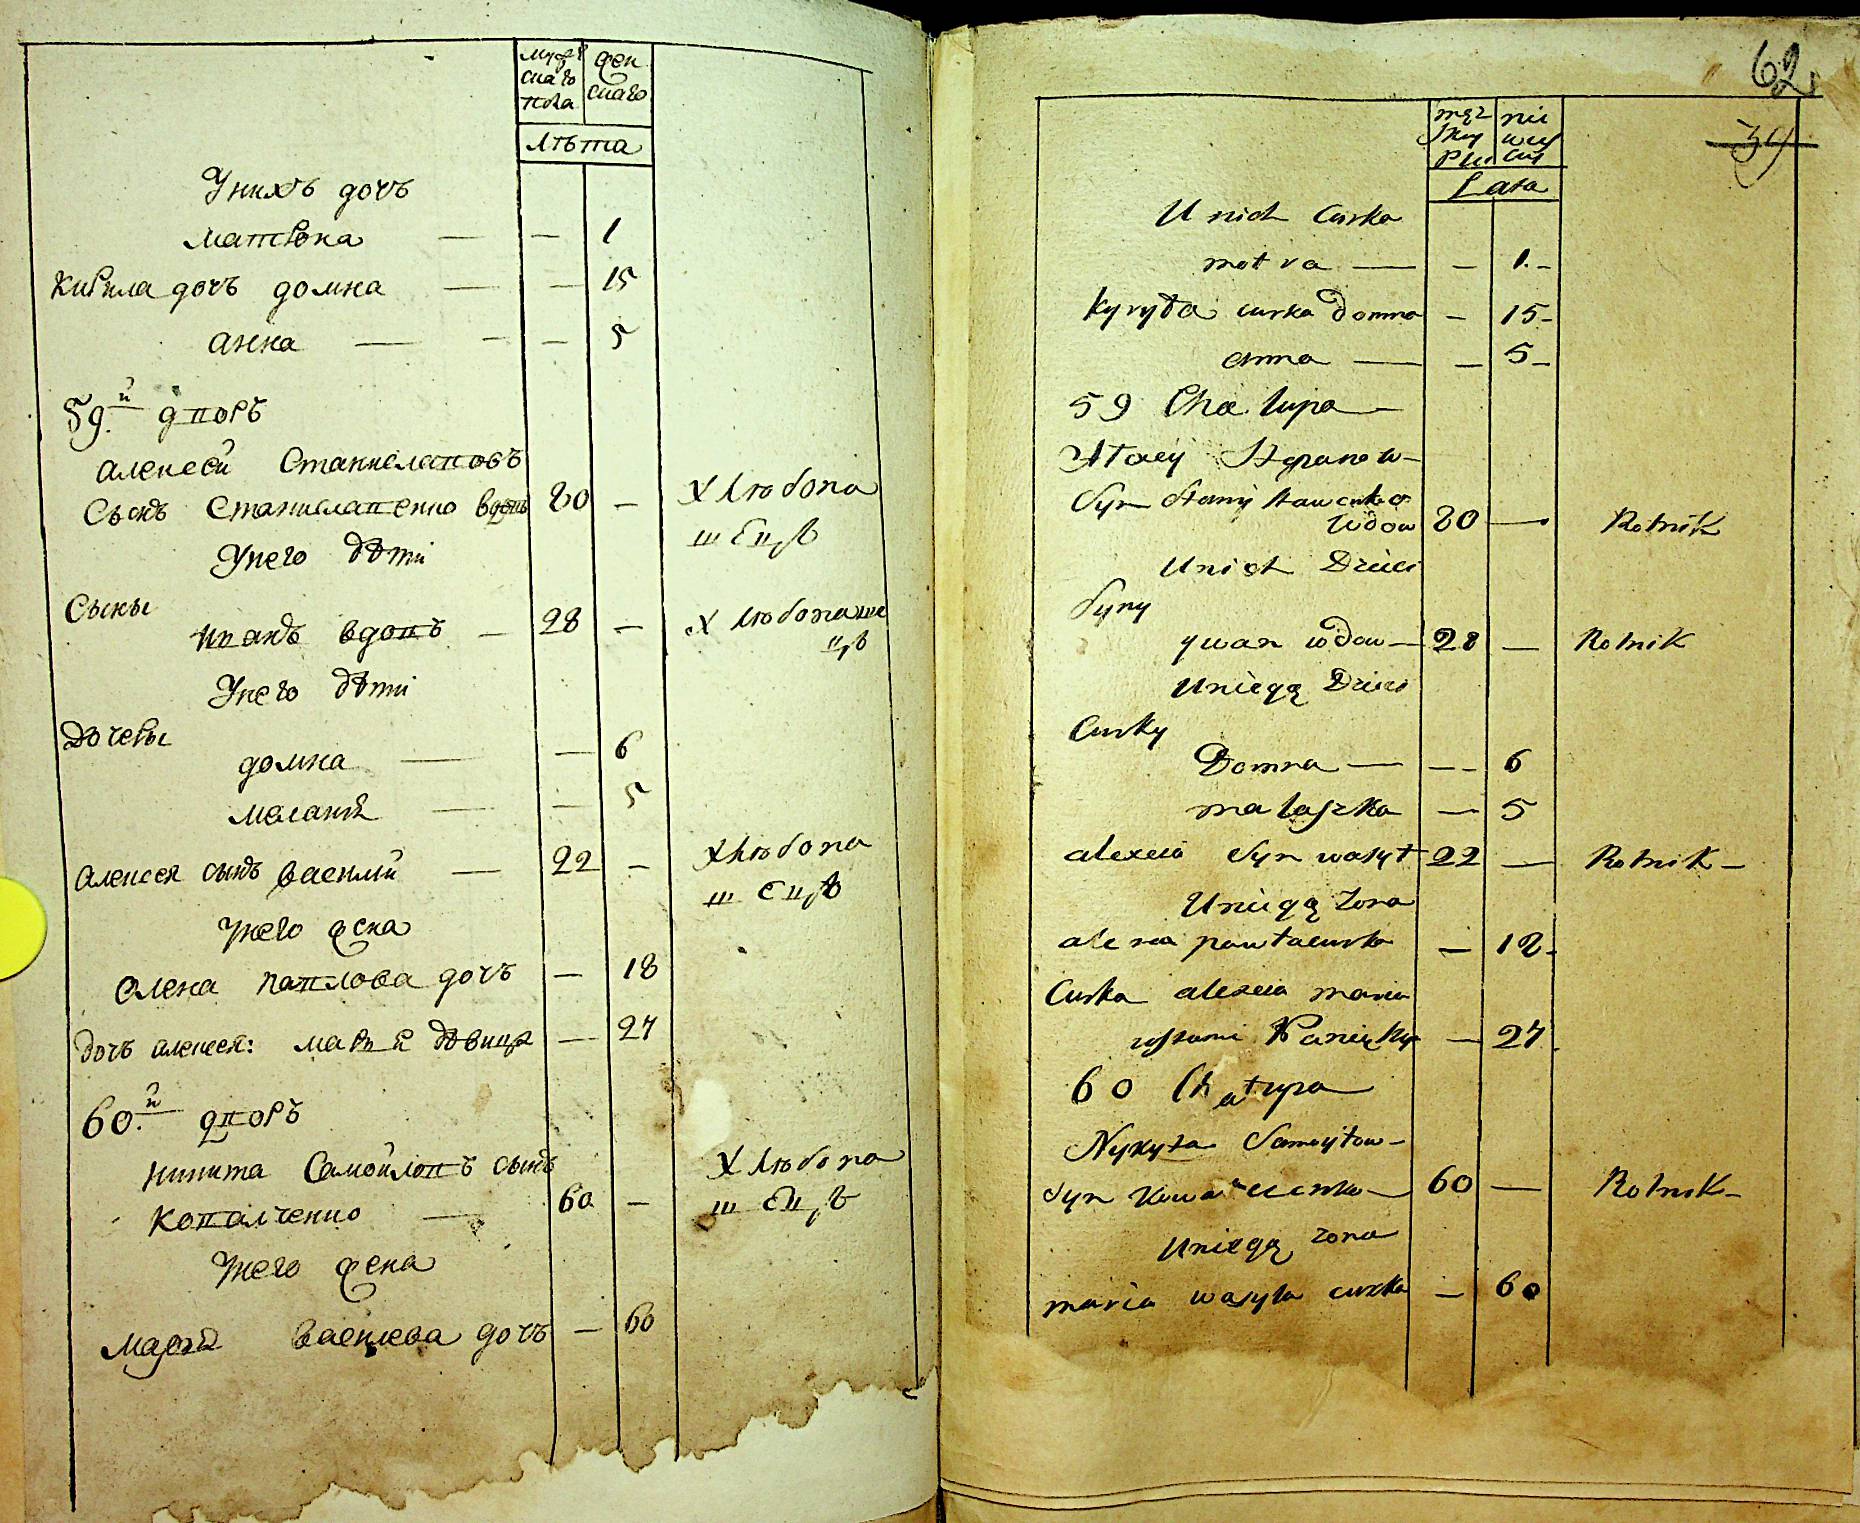 мужескаго пола
женскаго
Лѣта
У нихъ дочъ
Матрона — — 1
Кирила дочъ домна — — 15
анна — — 5
59.й дворъ
алексей Станиславовъ
Сынъ Станиславенко вдовъ 80 — Хлебопашецъ
У него дѣти
Сыны
иванъ вдовъ — 28 — Хлебопашецъ
У него дѣти
Дочеры
домна — — 6
маланя — — 5
алексея сынъ василий — 22 — Хлебопашецъ
У него жена
олена павлова дочъ — 18
дочъ алексея: мария дѣвица — 27
60.й дворъ
никита Самойловъ сынъ
коваленко — 60 — Хлебопашецъ
У него жена
мария василева дочъ — 60
62
39
męzkey płci
niewiesciey
Lata
U nich Curka
motra — — 1.-
Kyryła curka Domna — 15-
anna — — 5-
59 Chałupa —
Szepanow-
Syn Stanisławenko
Wdow 80 — Rolnik
Unich Dzieci
Syny
ywan wdow — 28 — Rolnik
Uniegą Dzieci
Curky
Domna — — 6
małaszka — 5
alexeia Syn wasył 22 — Rolnik —
Uniegą zona
alena pawła curka — 18-
Curka alexeia maria
— 27
60 Chałupa
Nykyta Samoyłow-
Syn 60 — Rolnik-
Uniegą zona
maria wasyla curka — 60